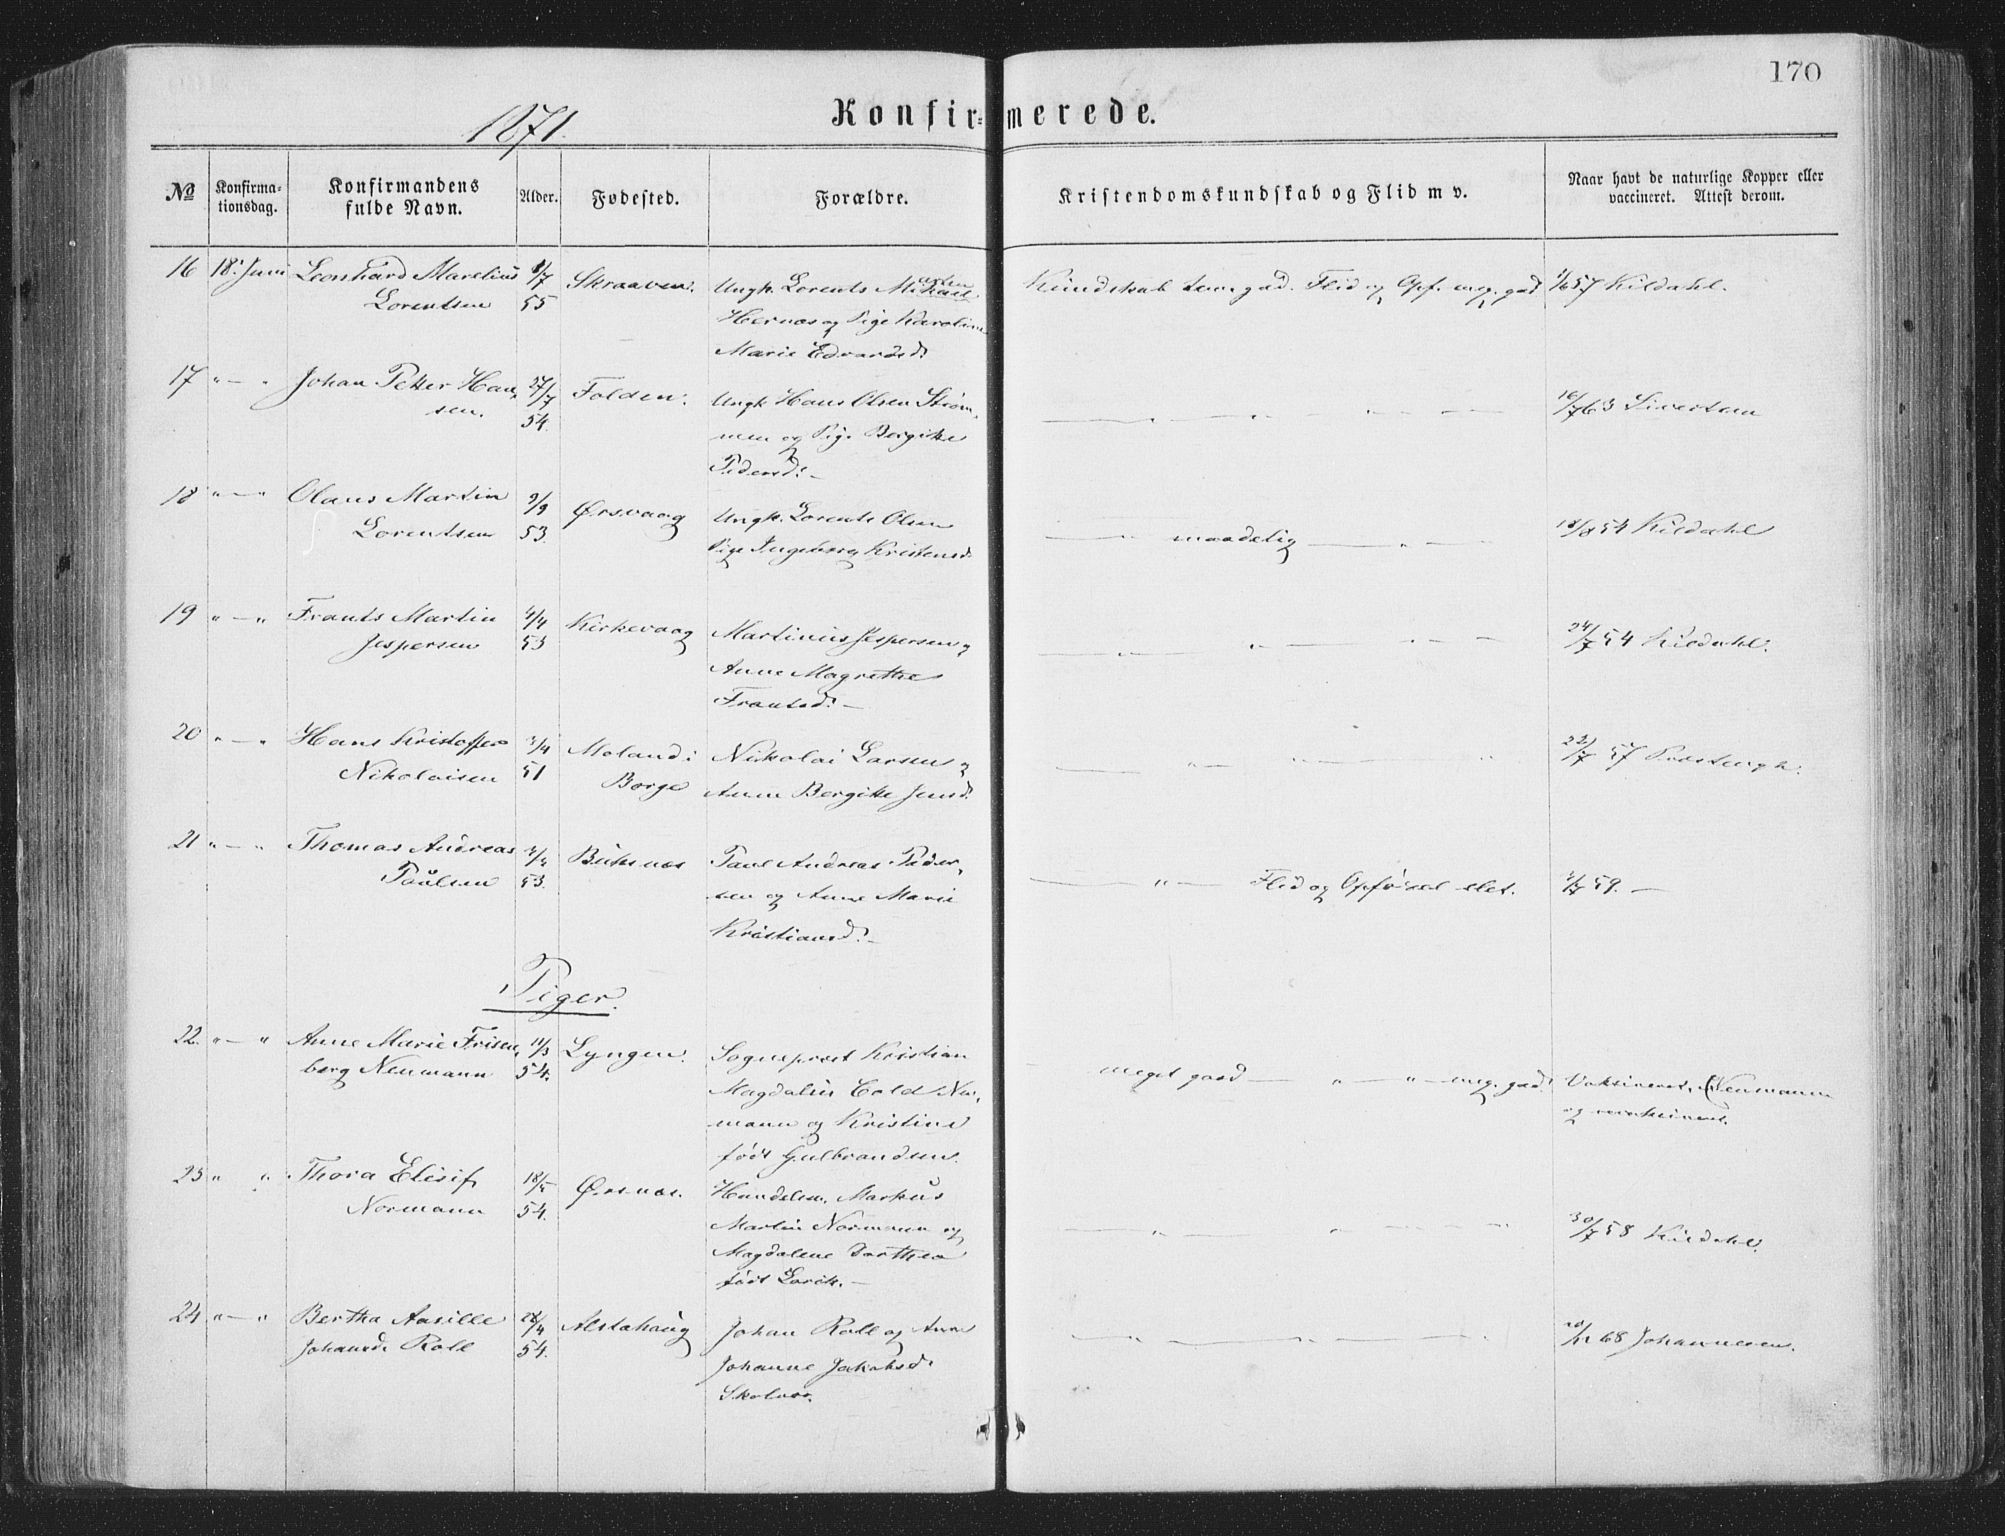 170
1871.
Konfirmerede.
No
Konfirma-
tionsdag.
Konfirmandens
fulde Navn.
Alder.
Fødested.
Forældre.
Kristendomskundskab og Flid m v.
Naar havt de naturlige Kopper eller
vaccineret. Attest derom.
16 18. Juni Leonhard Marelius
Lorentsen
8/7
55
Skraaven.
Ungk. Lorents Mikael
Hernæs og Pige Karoline
Marie Edvardsd:
Kundskab tem. god. Flid og Opf. meg. god.
57 Kildahl.
17 " — " Johan Peter Han-
sen.
27/7
54.
Folden.
Ungk Hans Olsen Strøm-
men og Pige Bergithe
Pedersd: —
— " — " — " — " —
16/7 63 Sivertsen
18 " — " Olaus Martin
Lorentsen
9/9
53.
Ørsvaag
Ungk. Lorents Olsen
Pige Ingeborg Kristensd.
— " — maadelig — " —
18/8 54 Kildahl
19 " — " Frants Martin
Jespersen
4/4
53
Kirkevaag
Martinus Jespersen og
Anne Magrethe
Frantsd: —
— " — " — " — " —
24/7 54 Kildahl.
20 " — " Hans Kristoffer
Nikolaisen
3/4
51
Moland i
Borge
Nikolai Larsen og
Anne Bergithe Jensd.
— " — " — "
22/7 57
21 " — " Thomas Andreas
Paulsen
53.
Buksnæs
Paul Andreas Peder-
sen og Anne Marie
Kristiansd: —
— " — Flid og Opførsel slet.
59. —
Piger.
22. " — " Anne Marie Frisen-
berg Neumann
11/3
54.
Lyngen.
Sognepræst Kristian
Magdalus Cold Neu-
mann og Kristine
født Gulbrandsen.
meget god — " — " — meg. god.
Vaksineret, Neumann
og revaksineret.
23 " " Thora Elisif
Normann
18/5
54.
Ørsnæs.
Handelsm. Markus
Martin Normann og
Magdalene Dorthea
født Lorch. —
— " — " — " —
30/7 58 Kildahl.
24 " — " Bertha Aasille
Johansd. Roll
28/4
54.
Alstahaug
Johan Roll og Ane
Johanne Jakobsd.
— " — " — " — " —
20/12 68 Johannesen.